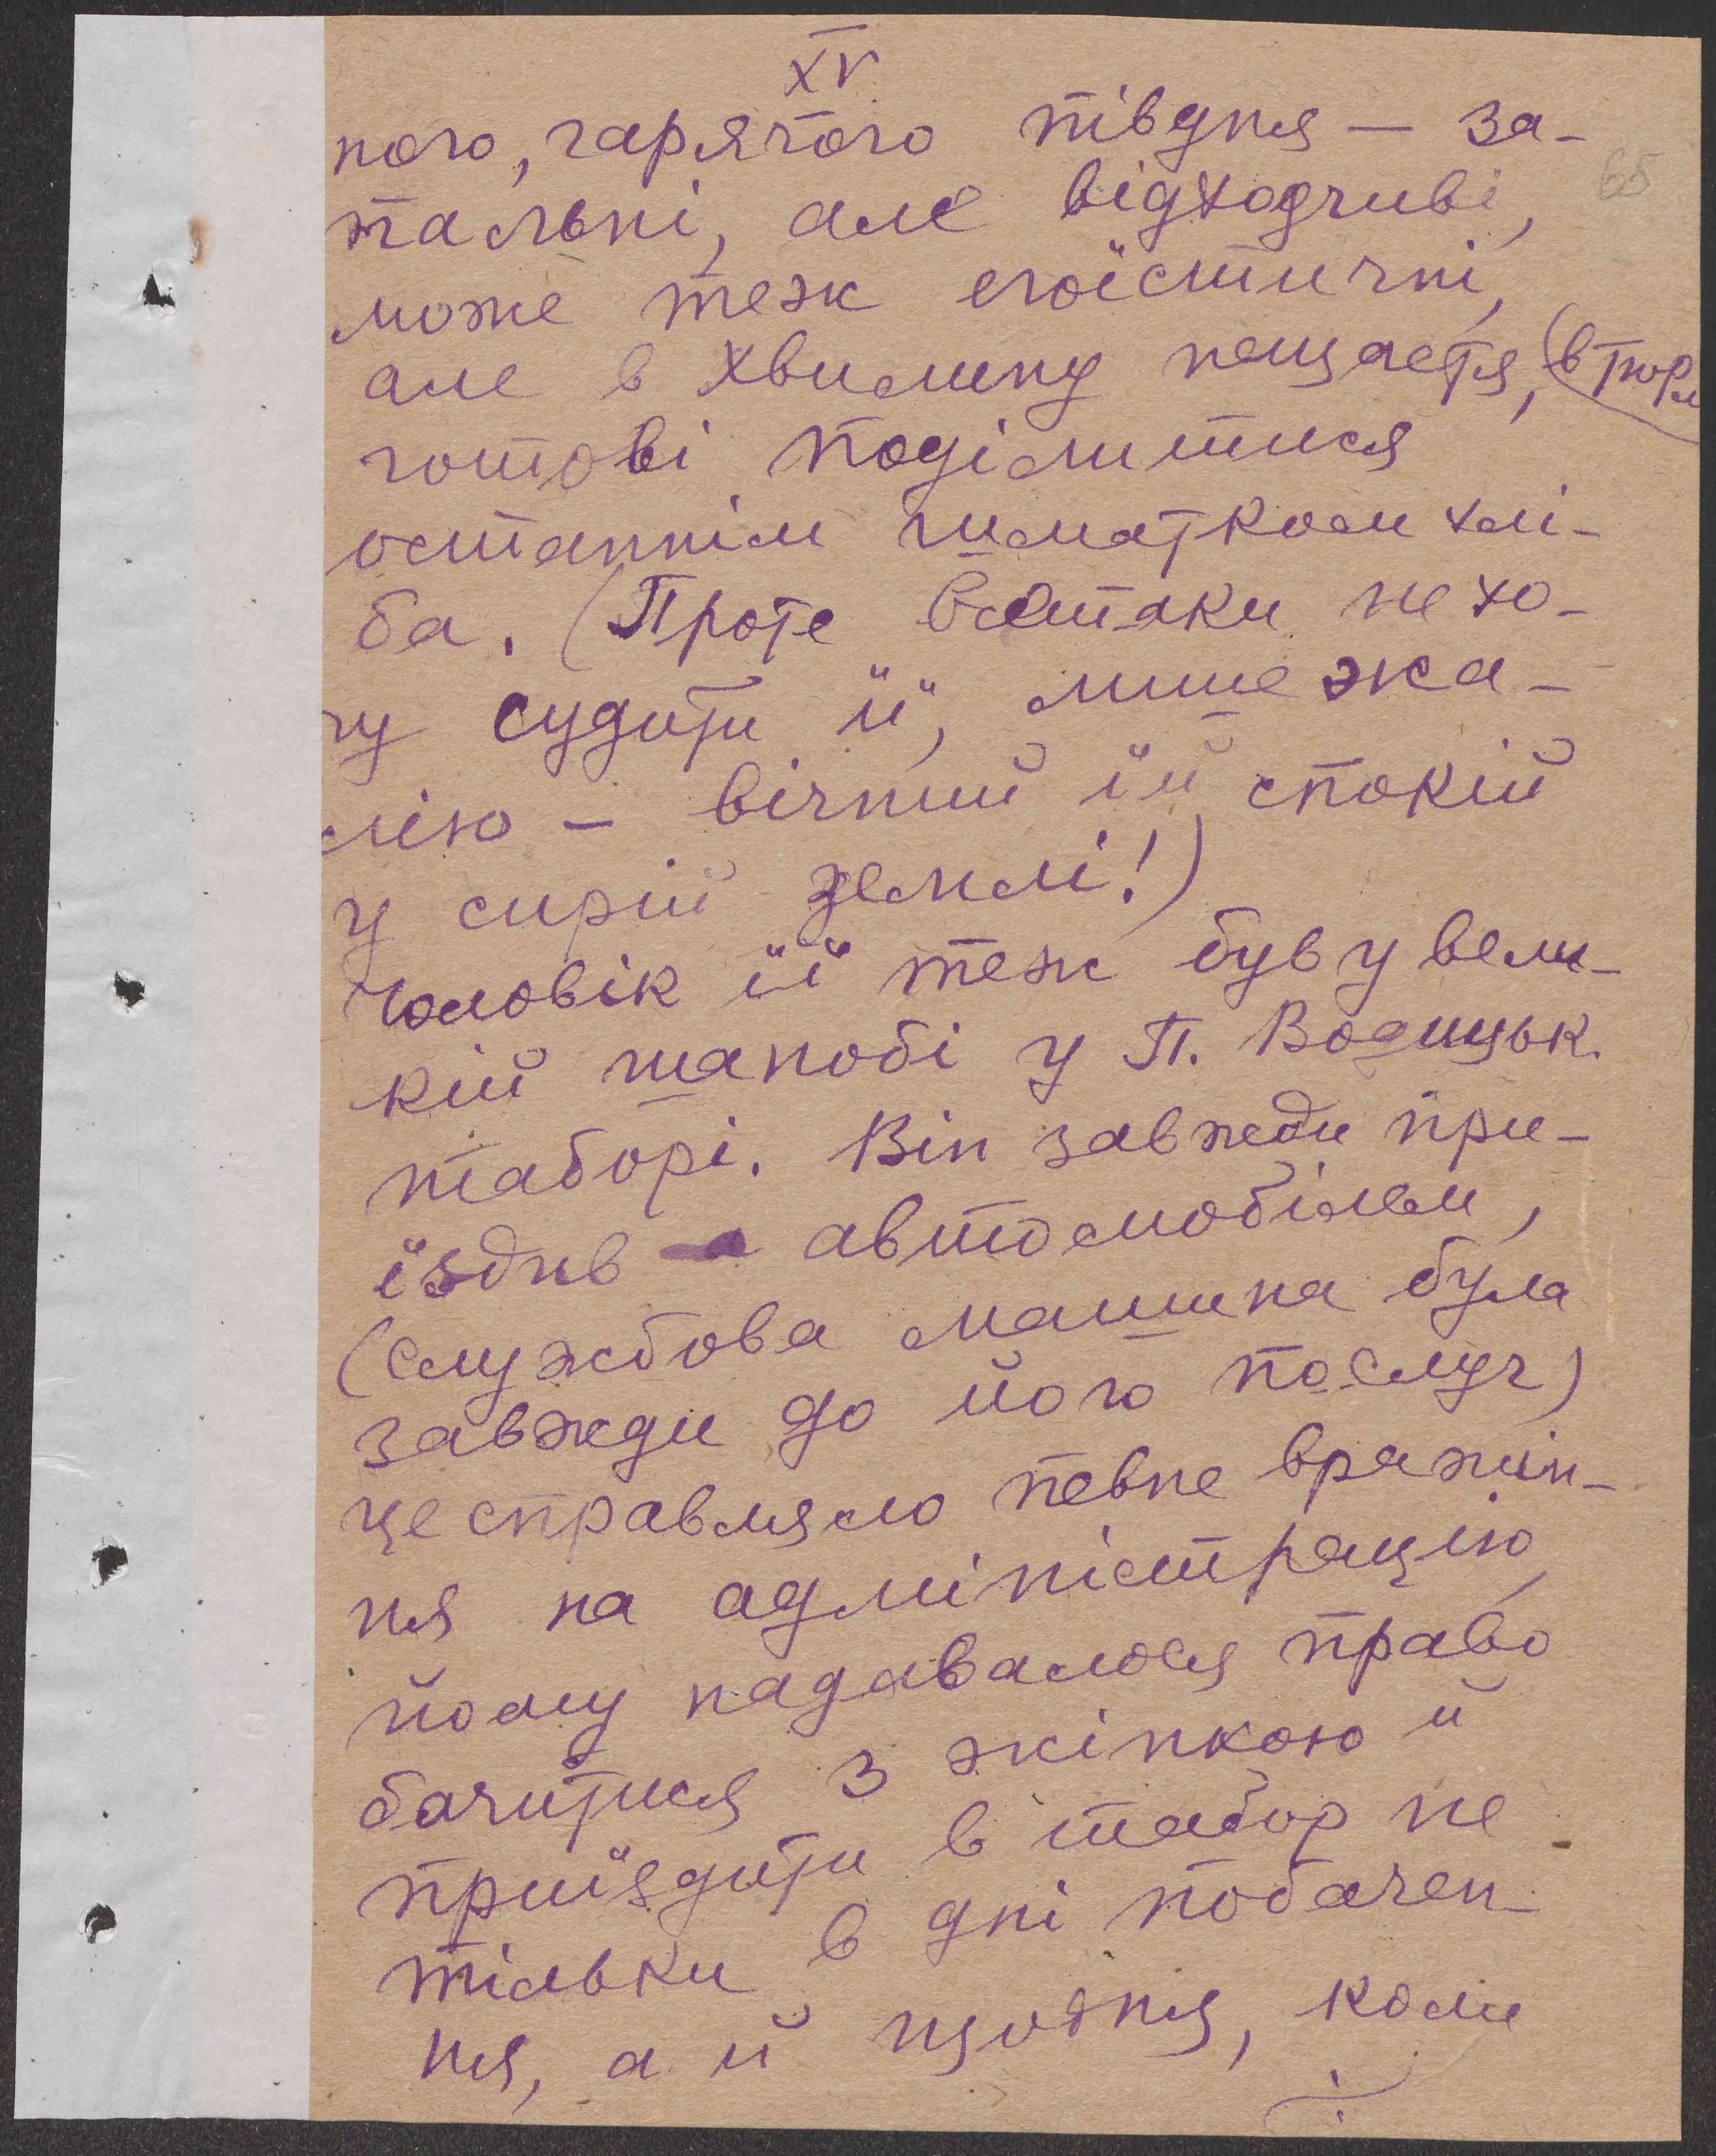 XV
ного, гарячого півдня — за-
65
пальні, але відходчиві,
може теж егоїстичні,
але в хвилину нещастя, (в тюрм
готові поділитися
останнім шматком хлі-
ба. (Проте всетаки не хо-
чу судити її, лише жа-
лію — вічний їй спокій
у сирій землі!)
Чоловік її теж був у вели-
кій шанобі у П. Водицьк.
таборі. Він завжди при-
їздив автомобілем,
(службова машина була
завжди до його послуг)
це справляло певне вражін-
ня на адміністрацію,
йому надавалося право
бачитися з жінкою й
приїздити в табор не
тільки в дні побачен-
ня, а й щодня, коли